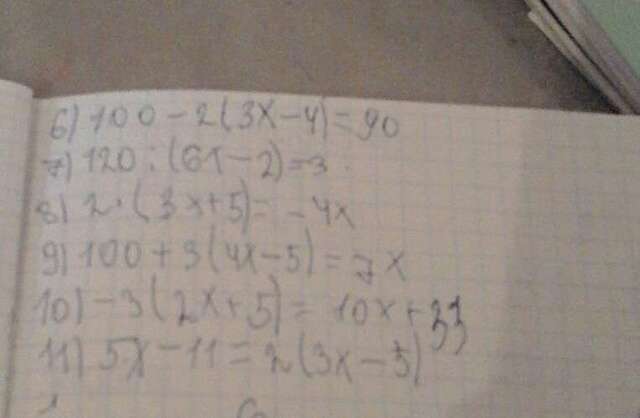 6) 100 - 2(3x-4)=90
7) 120 : (61-2)=3
8) 2·(3x+5)= -4x
9) 100 + 3(4x-5)= 7x
10) -3(2x+5)= 10x+33
11) 5x-11=2(3x-5)